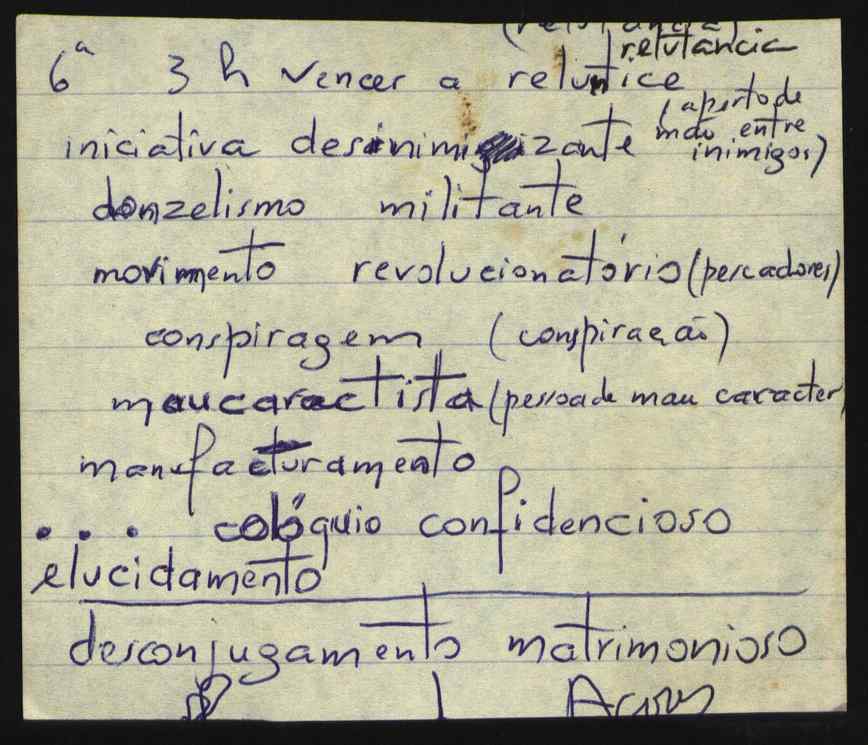 relutancia
6ª 3 h vencer a relutice
iniciativa desinimizante (aperto de mão entre inimigos)
donzelismo militante
movimento revolucionatório (pescadores)
conspiragem (conspiração)
maucaractista (pessoa de mau caracter
manufacturamento
... colóquio confidencioso
elucidamento
desconjugamento matrimonioso